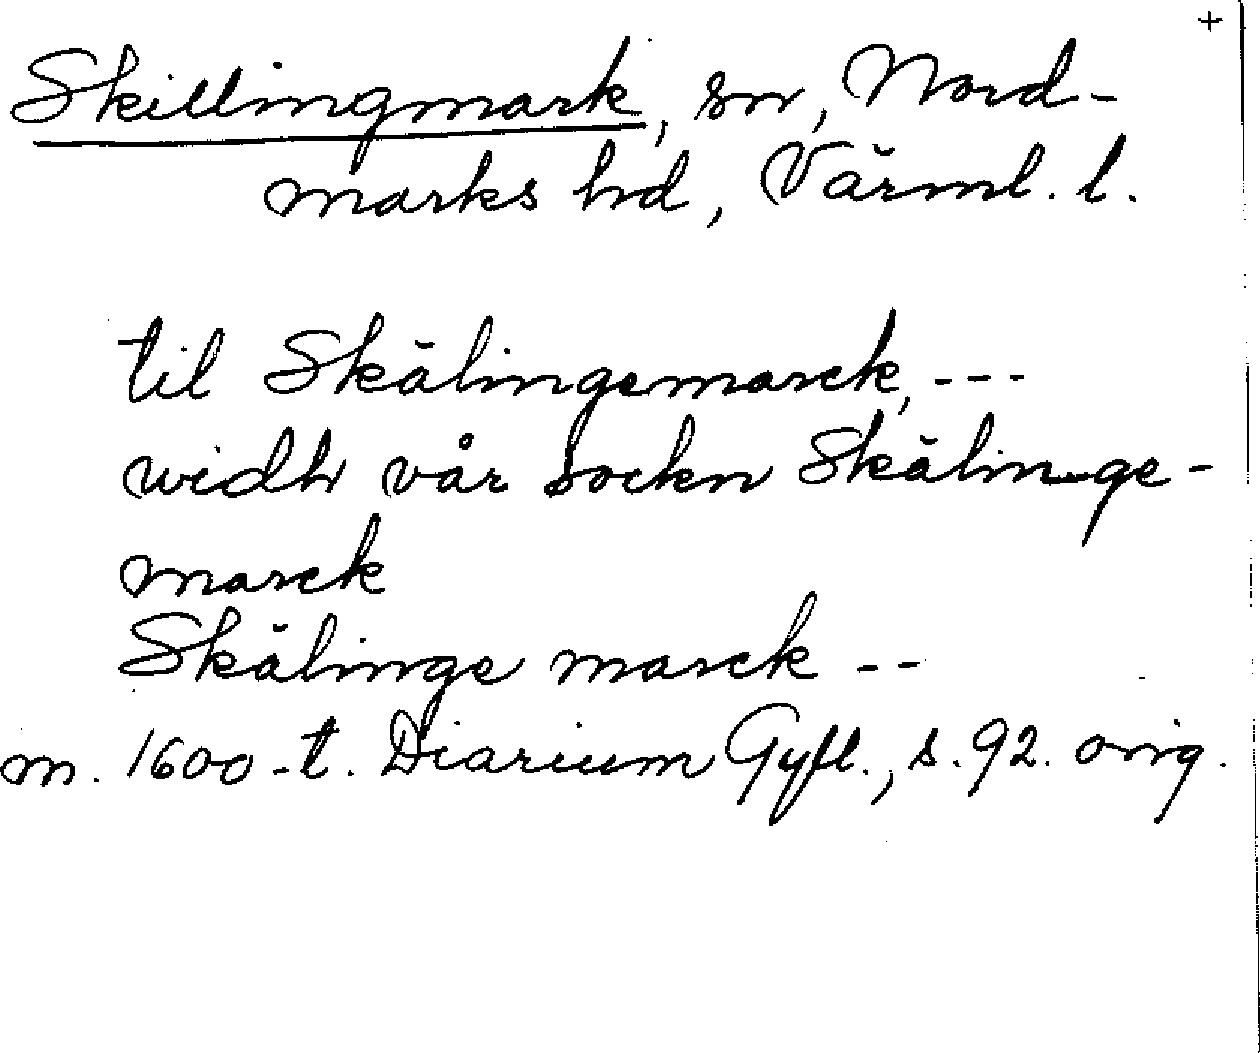 +
Skillingmark, sn, Nord-
marks hd, Värml. l.
til Skälingemarck, ---
widh vår sockn Skälinge-
marck
Skälinge marck --
m. 1600-t. Diarium Gyll., s. 92. orig.